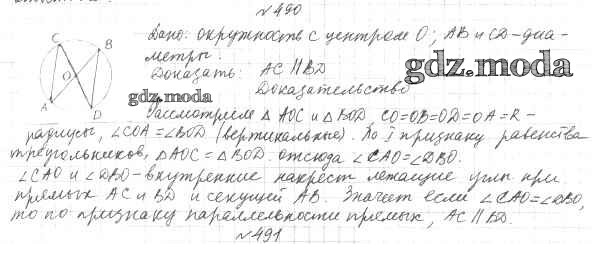 №490
Дано: окружность с центром O; AB и CD - диа-
метры.
Доказать: AC || BD
Доказательство
gdz.moda
gdz.moda
C
B
O
A
D
Рассмотрим △ AOC и △ BOD, CO=OB=OD=OA=R -
радиусы, ∠COA=∠BOD (вертикальные). По I признаку равенства
треугольников, △AOC = △BOD. отсюда ∠CAO=∠DBO.
∠CAO и ∠DBO - внутренние накрест лежащие углы при
прямых AC и BD и секущей AB. Значит если ∠CAO=∠DBO,
то по признаку параллельности прямых, AC || BD.
№491